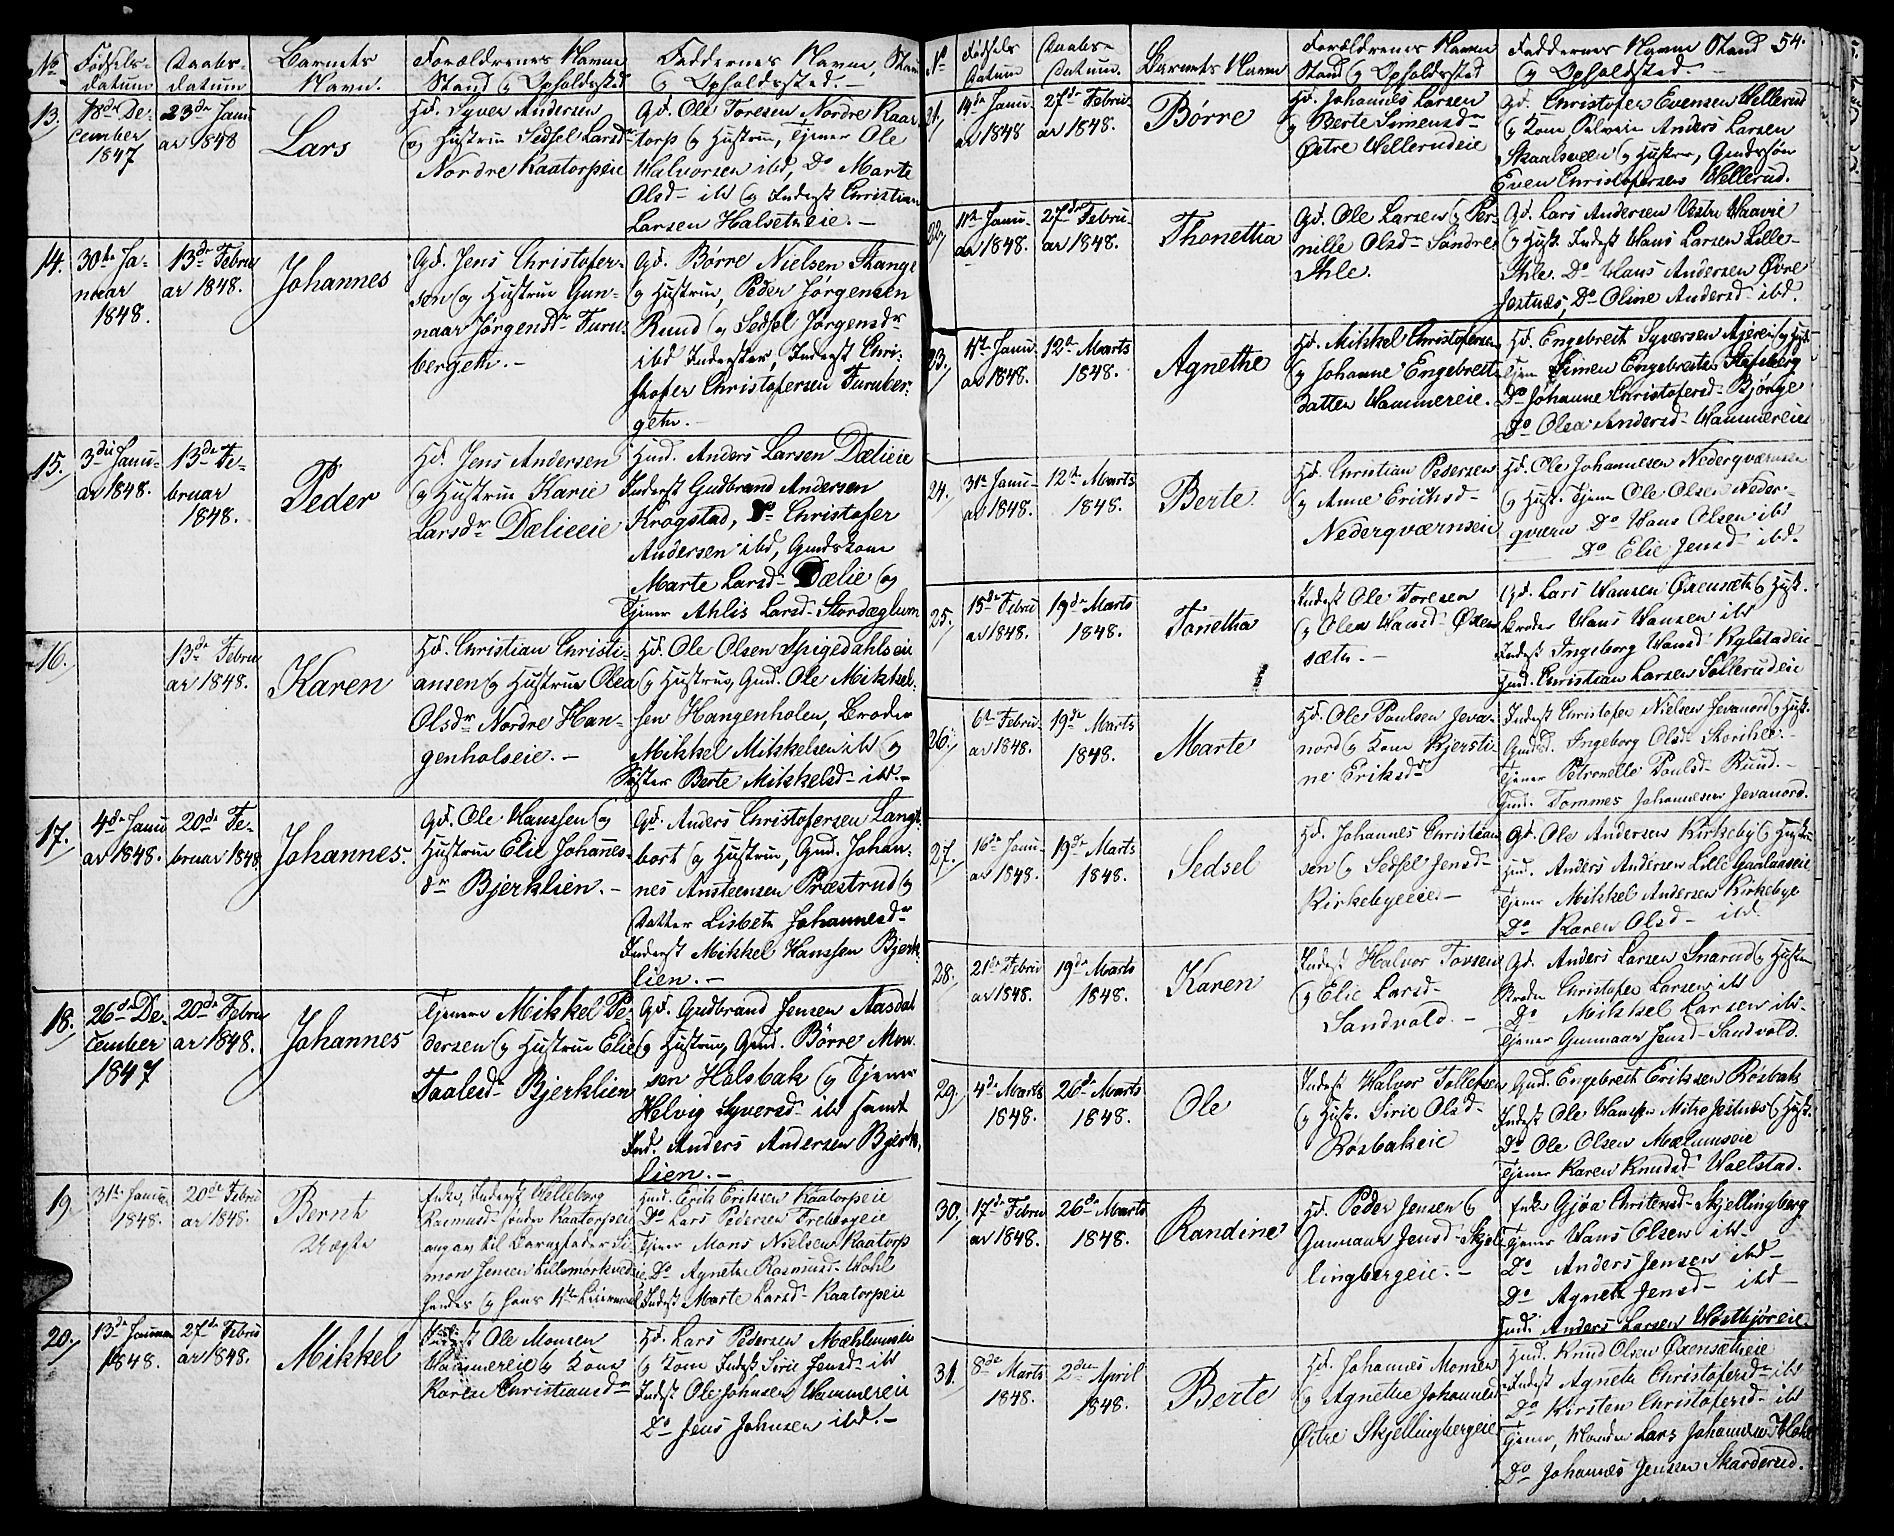 No
Fødsels-
datum
Daabs-
datum
Barnets
Navn.
Forældrenes Navne
Stand og Opholdssted
Faddernes Navne, Stand
og Opholdssted.
13.
18de De-
cember
1847
23de Janu
ar 1848
Lars
Hd. Syver Andersen
og Hustrue Sedsel Larsdr
Nordre Kaatorpeie
Gd. Ole Toresen Nordre Kaa
torp og Hustrue, Tjener Ole
Halvorsen ibd, Do Marte
Olsd- ibd og Inderst Christian
Larsen Halseth eie.-
14.
30te Ja-
nuar
1848.
13de Febru
ar 1848.
Johannes
Gd. Jens Christofer-
sen og Hustrue Gun-
naar Jørgensdr Furu-
bergeth.-
Gd. Børre Nielsen Stange
og Hustrue, Peder Jørgensen
Ruud og Sedsel Jørgensdr
ibd Inderster, Inderst Chri-
stofer Christofersen Furuber-
geth.-
15.
3die Janu-
ar 1848.
13de Fe-
bruar
1848.
Peder
Hd. Jens Andersen
og Hustrue Karie
Larsdr Dælieeie
Hmd. Anders Larsen Dælieie
Inderst Gudbrand Andersen
Krogstad, Do Christofer
Andersen ibd, Gmdskone
Marte Larsd- Dælie og
Tjener Ahlis Larsd- Stordæglum
16.
13de Febru
ar 1848.
Karen
Hd. Christian Christi-
ansen og Hustrue Olea
Olsdr Nordre Han-
genholseie.-
Hd. Ole Olsen Spigedahlseie
og Hustrue, Gmd. Ole Mikkel-
sen Hangenholen, Broder
Mikkel Mikkelsen ibd og
Søster Berte Mikkelsd- ibd.-
17.
4de Janu
ar 1848.
20de Fe-
bruar 1848.
Johannes.
Gd. Ole Hanssen og
Hustrue Elie Johanes-
dr Bjerklien.-
Gd. Anders Christofersen Lang-
bort og Hustrue, Gmd. Johan-
nes Ansteensen Præstrud og
Datter Lisbeth Johannesdr
Inderst Mikkel Hanssen Bjerk-
lien.-
18.
26de De-
cember
1847
20de Febru
ar 1848.
Johannes
Tjenere Mikkel Pe-
dersen og Hustrue Elie
Taalesd- Bjerklien
Gd. Gudbrand Jensen Aasdal
og Hustrue, Gmd. Børre Mon-
sen Holsbak og Tjener
Helvig Syversd- ibd samt
Ind. Anders Andersen Bjerk-
lien.-
19.
31te Janu
1848.
20de Febru
ar 1848.
Bernt
Uægte
Enke, Inderst
Rasmusd- Søndre Kaatorpeie
angav til Barnefader Si-
mon Jensen
hendes og hans
Hmd. Erik Eriksen Kaatorpeie
Do Lars Pedersen Frebergeie
Tjener Mons Nielsen Kaatorp
Do Agnethe Rasmusd- Hohl
Inderst Marte Larsd- Kaatorpeie
20.
13de Januar
1848.
27de Febru
ar 1848.
Mikkel
Inderst Ole Monsen
Hammereie og Kone
Karen Christiansdr
Hd. Lars Pedersen Mæhlumseie
og Kone Inderst Sirie Jensd- ibd
Inderst Ole Johnsen Hammereie
Do Jens Johnsen ibd.-
No
Fødsels
Datum
Daabs-
Datum.
Barnets Navn
Forældrenes Navne
Stand og Opholdssted
Faddernes Navne Stand
og Opholdssted.-
54.
21.
14de Janu-
ar 1848
27de Febru-
ar 1848.
Børre
Hd. Johannes Larsen
og Berte Simensdr
Østre Wellerudeie
Gd. Christofer Evensen Wellerud
og Kone Anders Larsen
og Hustru, Gaardsøn
Even Christofersen Wellerud.
22.
11te Janu-
ar 1848.
27de Febru-
ar 1848.
Thonettha
Gd. Ole Larsen og Per-
nille Olsdr Søndre
Ihle.
Gd. Lars Andersen Vestre
og Hust. Inderst Hans Larsen Lille-
Ihle. Do Hans Andersen Øvre
Jestnes, Do Oline Andersd- ibd.
23.
11te Janu-
ar 1848.
12te Marts
1848.
Agnethe
Hd. Mikkel Christofersen
og Johanne Engebrets-
datter Hammereie.
Hd. Engebreth Syversen og Hust.
Tjen Simen Engebretsen
Do Johanne Christofersd- Bjørge
Do Olea Andersd- Hammereie
24.
31te Janu-
ar 1848.
12te Marts
1848.
Berte.
Hd. Christian Pedersen
og Anne Eriksd-
Nederqværnseie
Hd. Ole Johannesen Nederqværnseie
og Hust. Tjener Ole Olsen Neder-
qværn Do Hans Olsen ibd
Do Elie Jensd- ibd.
25.
15de Febru
ar 1848.
19de Marts
1848.
Tonetha
Inderst Ole Toresen
og Olea Hansd- Øxen-
sæth.-
Gd. Lars Hansen Øxensæth og Hust.
Broder Hans Hansen ibd
Inderst Ingeborg Hansd-
Hmd. Christian Larsen Sollerudeie
26.
6te Febru-
ar 1848.
19de Marts
1848.
Marte
Hd. Ole Paulsen Jeva-
nord og Kone Kjersti-
ne Eriksdr
Inderst Christofer Nielsen Jevanord og Hust.
Gmdsd. Ingeborg Olsd-
Tjener Petronelle Paulsd- Ruud.-
Gmd. Tommes Johannesen Jevanord.
27.
16de Janu-
ar 1848.
19de Marts
1848.
Sedsel
Hd. Johannes Christian
sen og Sedsel Jensd-
Kirkebyeeie.-
Gd. Ole Andersen Kirkeby og Hustr.
Hmd. Anders Andersen Lille
Tjener Mikkel Andersen Kirkebye
Do Karen Olsd- ibd.
28.
21de Febru
ar 1848.
19de Marts
1848.
Karen
Inderst Halvor Tovsen
og Elie Larsd-
Sandvold.-
Gd. Anders Larsen Snarud og Hustru
Broder Christofer Larsen ibd
Do Mikkel Larsen ibd-
Tjener Gunnaar Jensd- Sandvold.
29.
4de Marts
1848.
26de Marts
1848.
Ole
Inderst Halvor Tollefsen
og Hust. Sirie Olsd-
Rosbakeie
Gmd. Engebreth Eriksen Rosbak
Inderst Ole Hansen Mitre Jestnes og Hust.
Do Ole Olsen Mælumseie
Tjener Karen Knudsd- Woelstad.
30.
17de Febru
ar 1848.
26de Marts
1848.
Randine
Hd. Peder Jensen og
Gunnaar Jensd- Skjel-
lingbergeie.-
Enke Gjøa Christensd- Skjellingberg
Tjener Hans Olsen ibd-
Do Anders Jensen ibd-
Do Agnethe Jensd- ibd-
Hmd. Anders Larsen
31.
8de Marts
1848.
2den April
1848.
Berte
Hd. Johannes Monsen
og Agnethe Johannesd
Østre Skjellingbergeie
Hmd. Knud Olsen Øxensætheie
Inderst Agnethe Christofersd- ibd
Do Kirsten Christofersd- ibd
Tjener, Lars Johannesen Hohl
Do Johannes Jensen Skarderud.